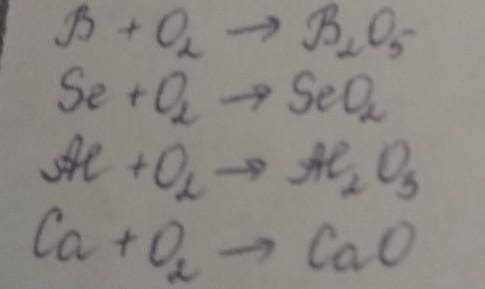 B + O₂ → B₂O₅
Se + O₂ → SeO₂
Al + O₂ → Al₂O₃
Ca + O₂ → CaO